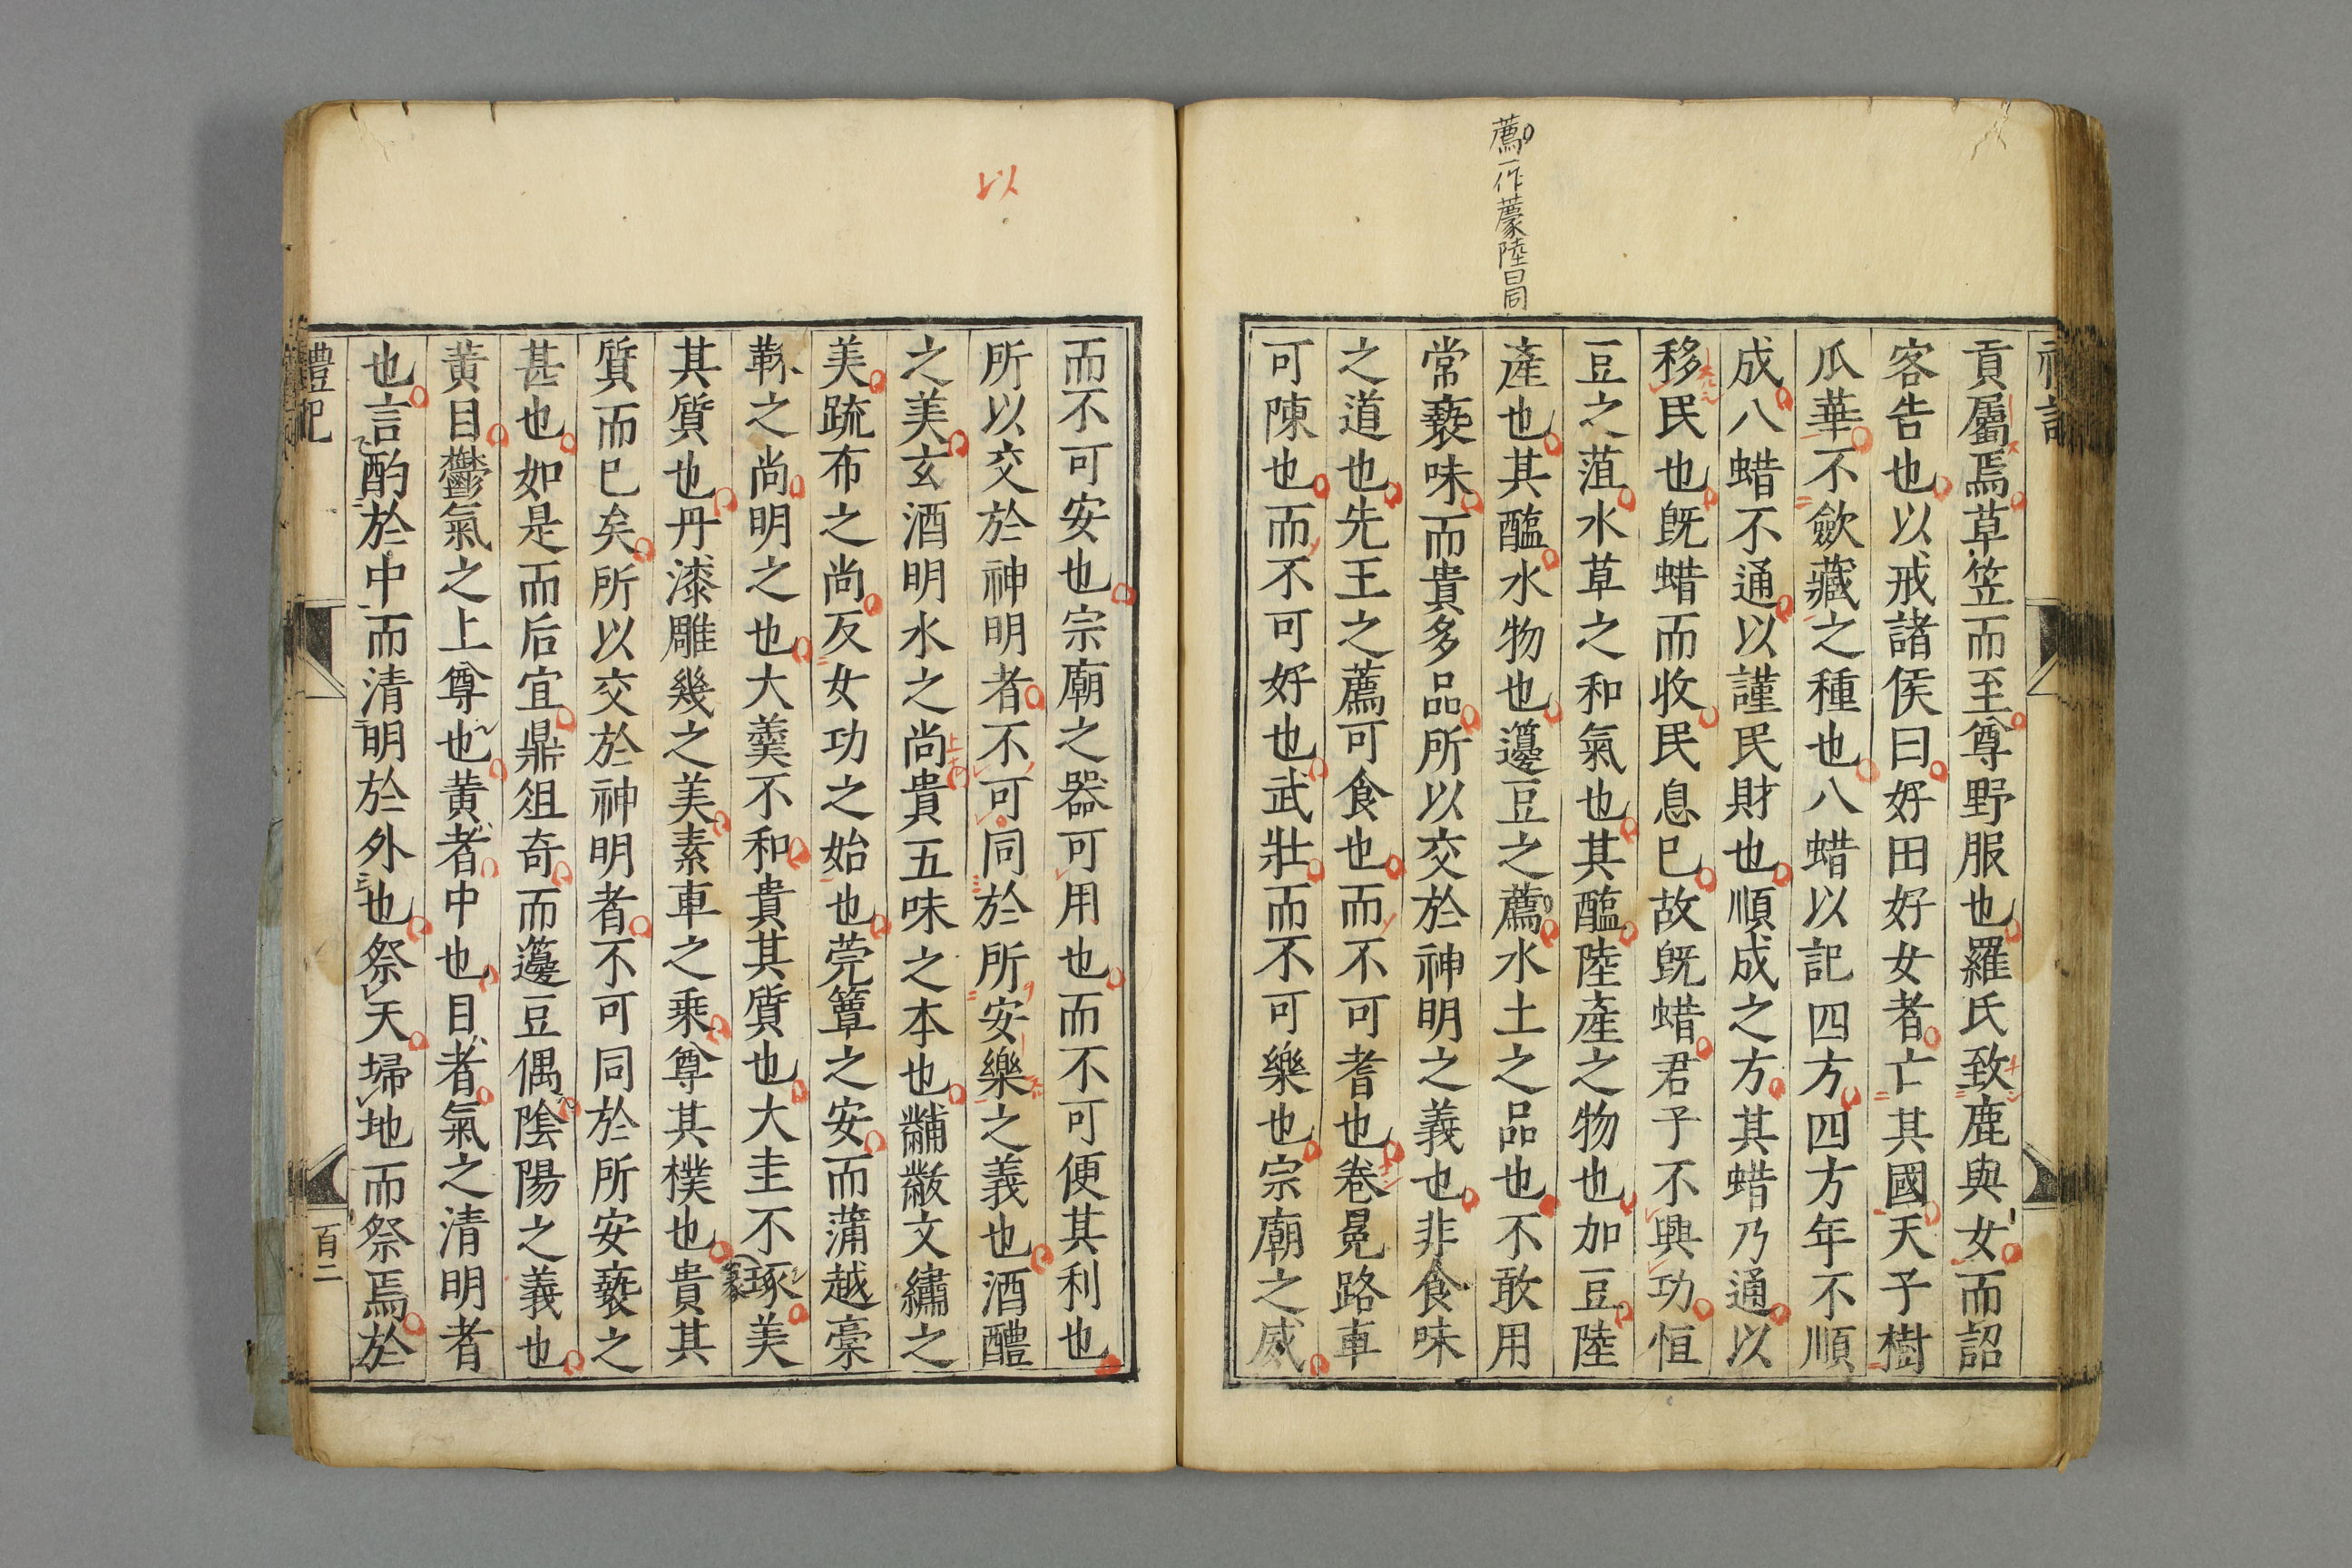 薦一作藆陸曰同
貢屬焉草笠而至尊野服也羅氏致鹿與女而詔
客告也以戒諸侯曰好田好女者亡其國天子樹
瓜華不斂藏之種也八蜡以記四方四方年不順
成八蜡不通以謹民財也順成之方其蜡乃通以
移民也旣蜡而收民息已故旣蜡君子不興功恒
豆之菹水草之和氣也其醢陸產之物也加豆陸
產也其醢水物也籩豆之薦水土之品也不敢用
常褻味而貴多品所以交於神明之義也非食味
之道也先王之薦可食也而不可耆也卷冕路車
可陳也而不可好也武壯而不可樂也宗廟之威
而不可安也宗廟之器可用也而不可便其利也
所以交於神明者不可同於所安樂之義也酒醴
之美玄酒明水之尚貴五味之本也黼黻文繡之
美疏布之尚反女功之始也莞簟之安而蒲越稾
鞂之尚明之也大羹不和貴其質也大圭不琢美
其質也丹漆雕幾之美素車之乘尊其樸也貴其
質而已矣所以交於神明者不可同於所安褻之
甚也如是而后宜鼎俎奇而籩豆偶陰陽之義也
黃目鬱氣之上尊也黃者中也目者氣之清明者
也言酌於中而清明於外也祭天埽地而祭焉於
禮記
百二
以
篆